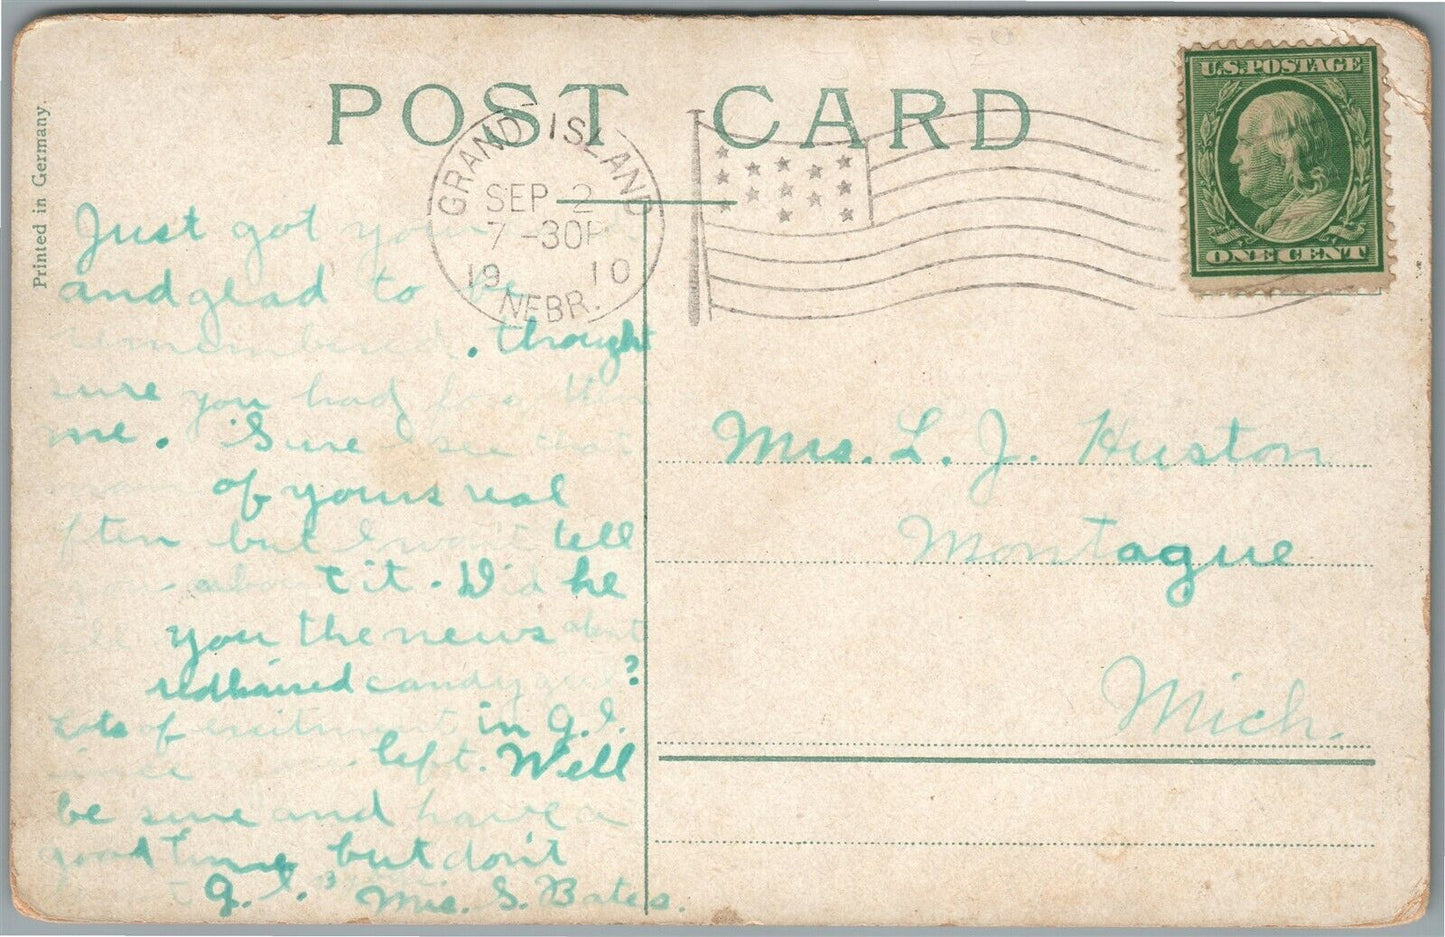 POST CARD
Printed in Germany.
U.S. POSTAGE
ONE CENT
GRAND ISLAND
SEP 2
7-30P
19 10
NEBR.
Just got your
and glad to be
remembered. thought
sure you had forgotten
me. Sure I see that
man of yours real
often but I won't tell
you about it. Did he
tell you the news about
redhaired candy girl?
Lots of exsitment in G. I.
since you left. Well
be sure and have a
good time but don't
forget G. I. Mrs. S. Bates.
Mrs. L. J. Huston
Montague
Mich.